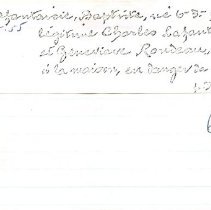 Lafantaisie, Baptiste, né 6-3-
55 légitime Charles Lafant
et Geneviève Rondeau,
à la maison, en danger de